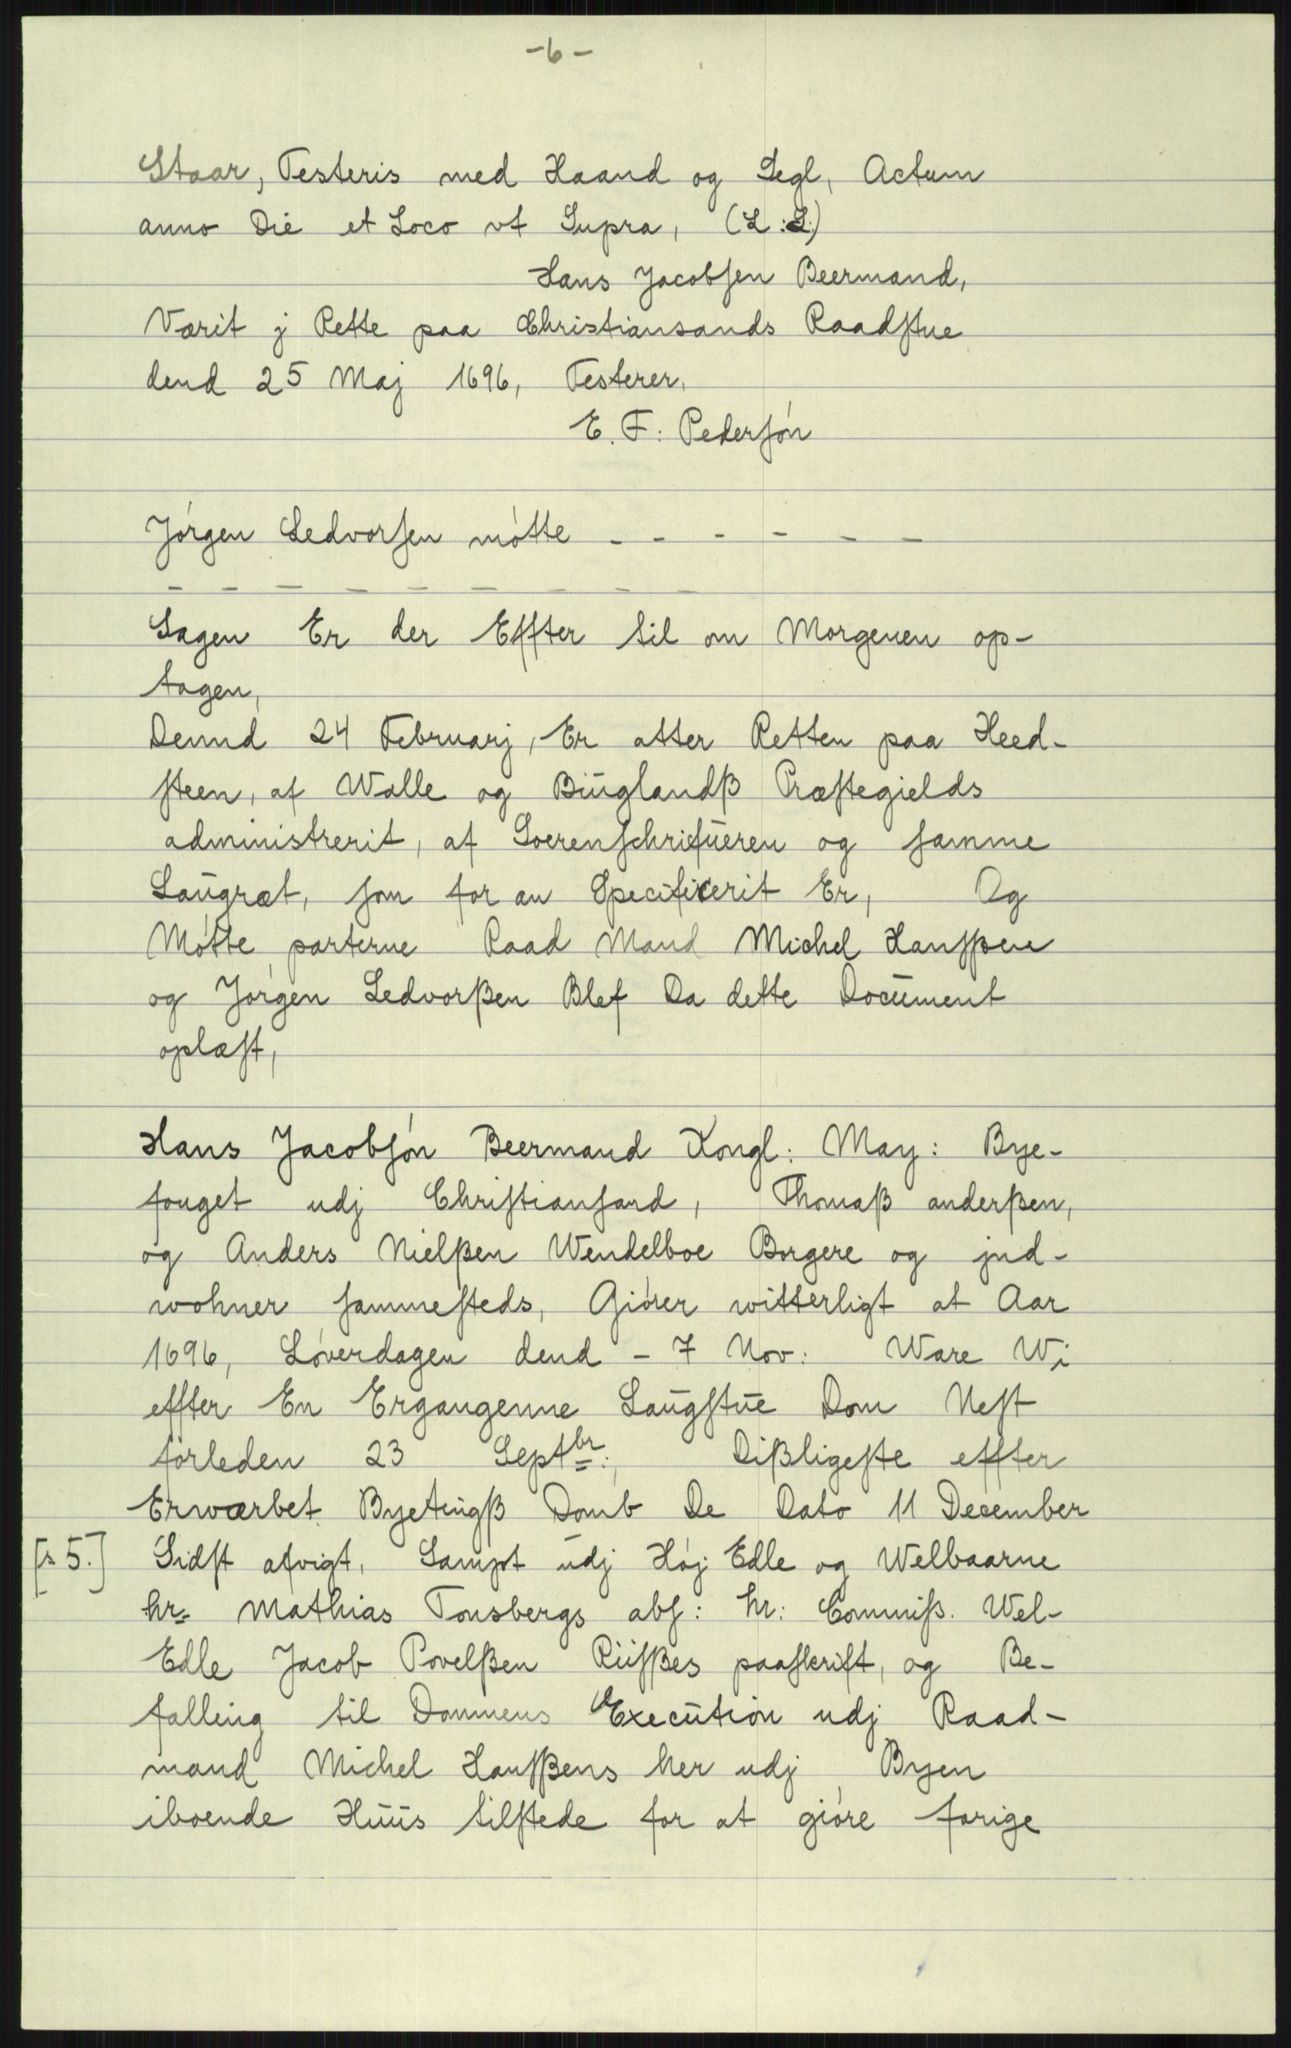 -6-
Staar, Testeris med Haand og Segl, Actum
anno Die et Loco vt Supra, (L:S:)
Hans Jacobsen Beermand,
Værit j Rette paa Christiansands Raadstue
dend 25 Maj 1696, Testerer,
E. F: Pedersón
Jórgen Ledvorsen mótte - - - - - -
- - - - - - - - -
Sagen Er der Effter til om Morgenen op-
tagen,
Dennd 24 Februarj, Er atter Retten paa Heed-
steen, af Walle og Bŭglandß Præstegields
administrerit, af Soerenschrifŭeren og samme
Laŭgræt, som for an Specificerit Er, Og
Mótte parterne Raad Mand Michel Hansßen
og Jórgen Ledvorßen Blef Da dette Docŭment
oplæst,
Hans Jacobsón Beermand Kongl: May: Bye-
fouget udj Christiansand, Thomaß anderßen,
og Anders Nielßen Wendelboe Borgere og jnd-
wohner sammesteds, Giórer witterligt at Aar
1696, Lóverdagen dend - 7 Nov: Ware Wi
effter En Ergangenne Laŭgstŭe Dom Nest
forleden 23 Septbr:, Dißligeste effter
Erværbet Byetingß Domb De Dato 11 December
[s 5.] Sidst afvigt, Sampt ŭdj Hój Edle og Welbaarne
hr= Mathias Tonsbergs abs: hr: Commiß. Wel-
Edle Jacob Povelßen Rŭsßes paaskrift, og Be-
falling til Dommens Execŭtion udj Raad-
mand Michel Hansßens her udj Byen
iboende Hŭŭs tilstede for at gióre forige